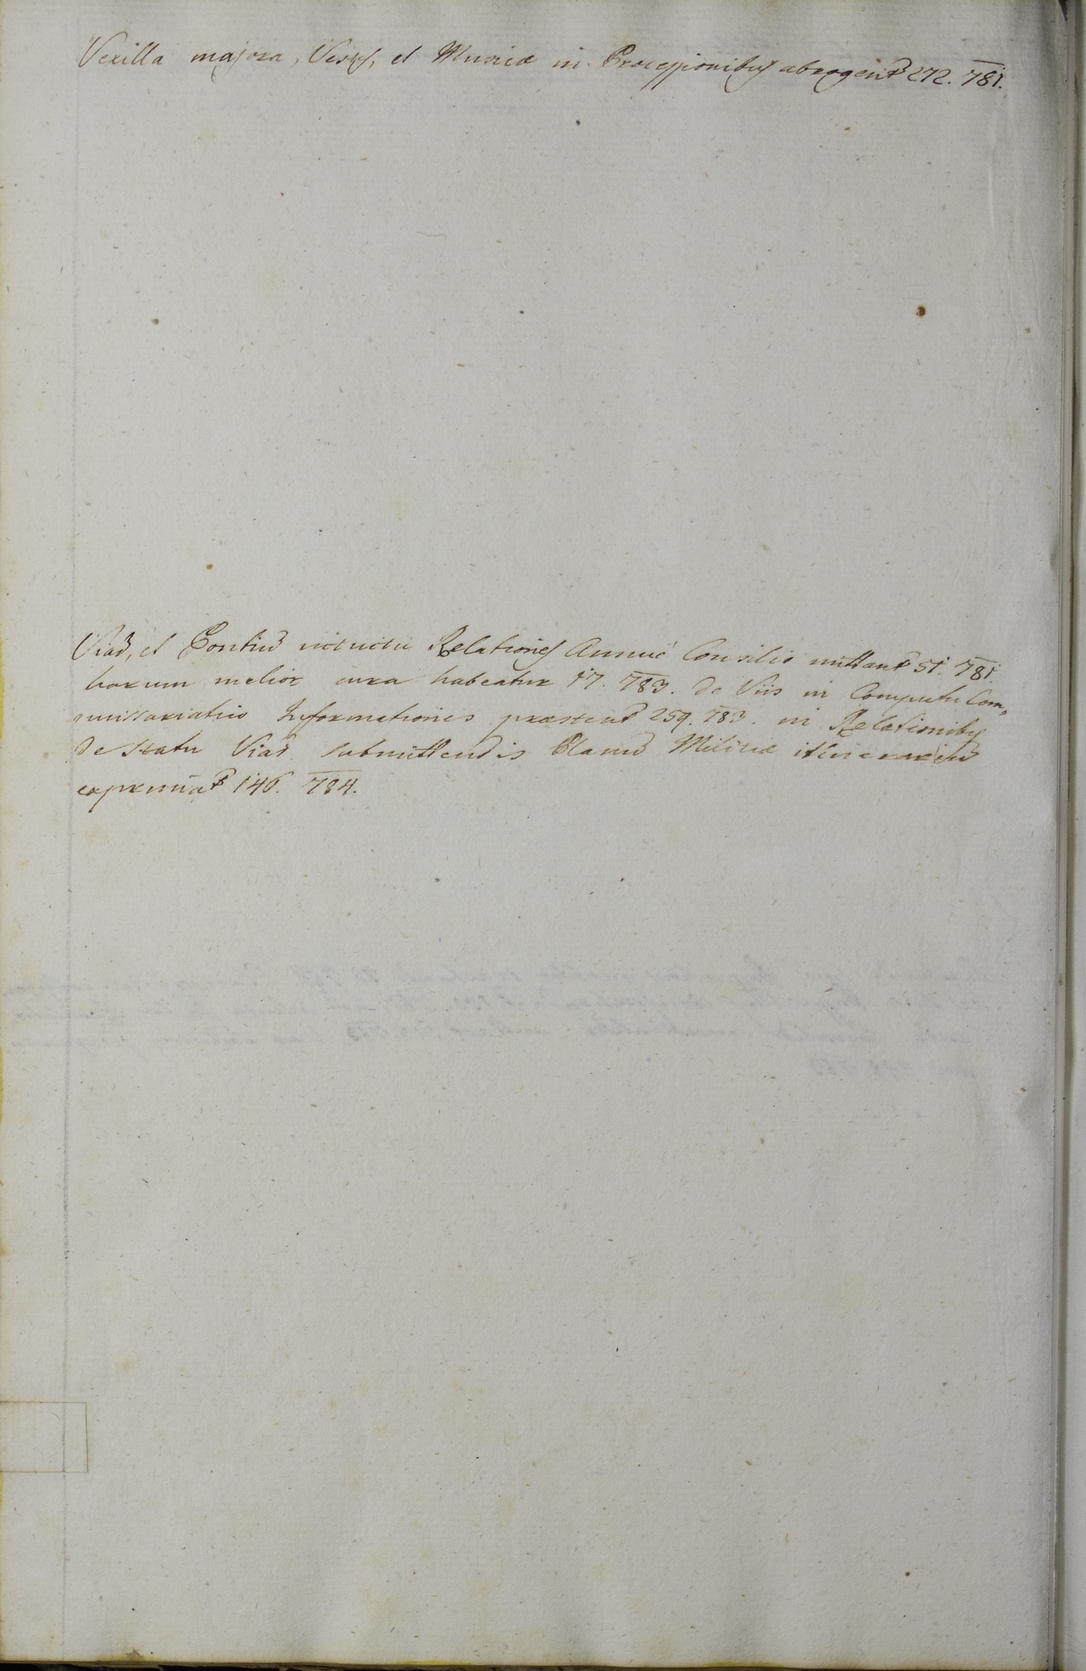 Vexilla majora, Vestes, et Musica in Processionibus abrogent 272. 781.
Viar, et Pontiu intuitu Relationes Annue Consilio mittant 51. 781.
harum melior cura habeatur 17. 783. de Viis in Computu Com,
missariatico Informationes praestent 259. 783. in Relationibus
de Statu Viar submittendis Planu Militiae itinerariu
exprimat 146. 784.